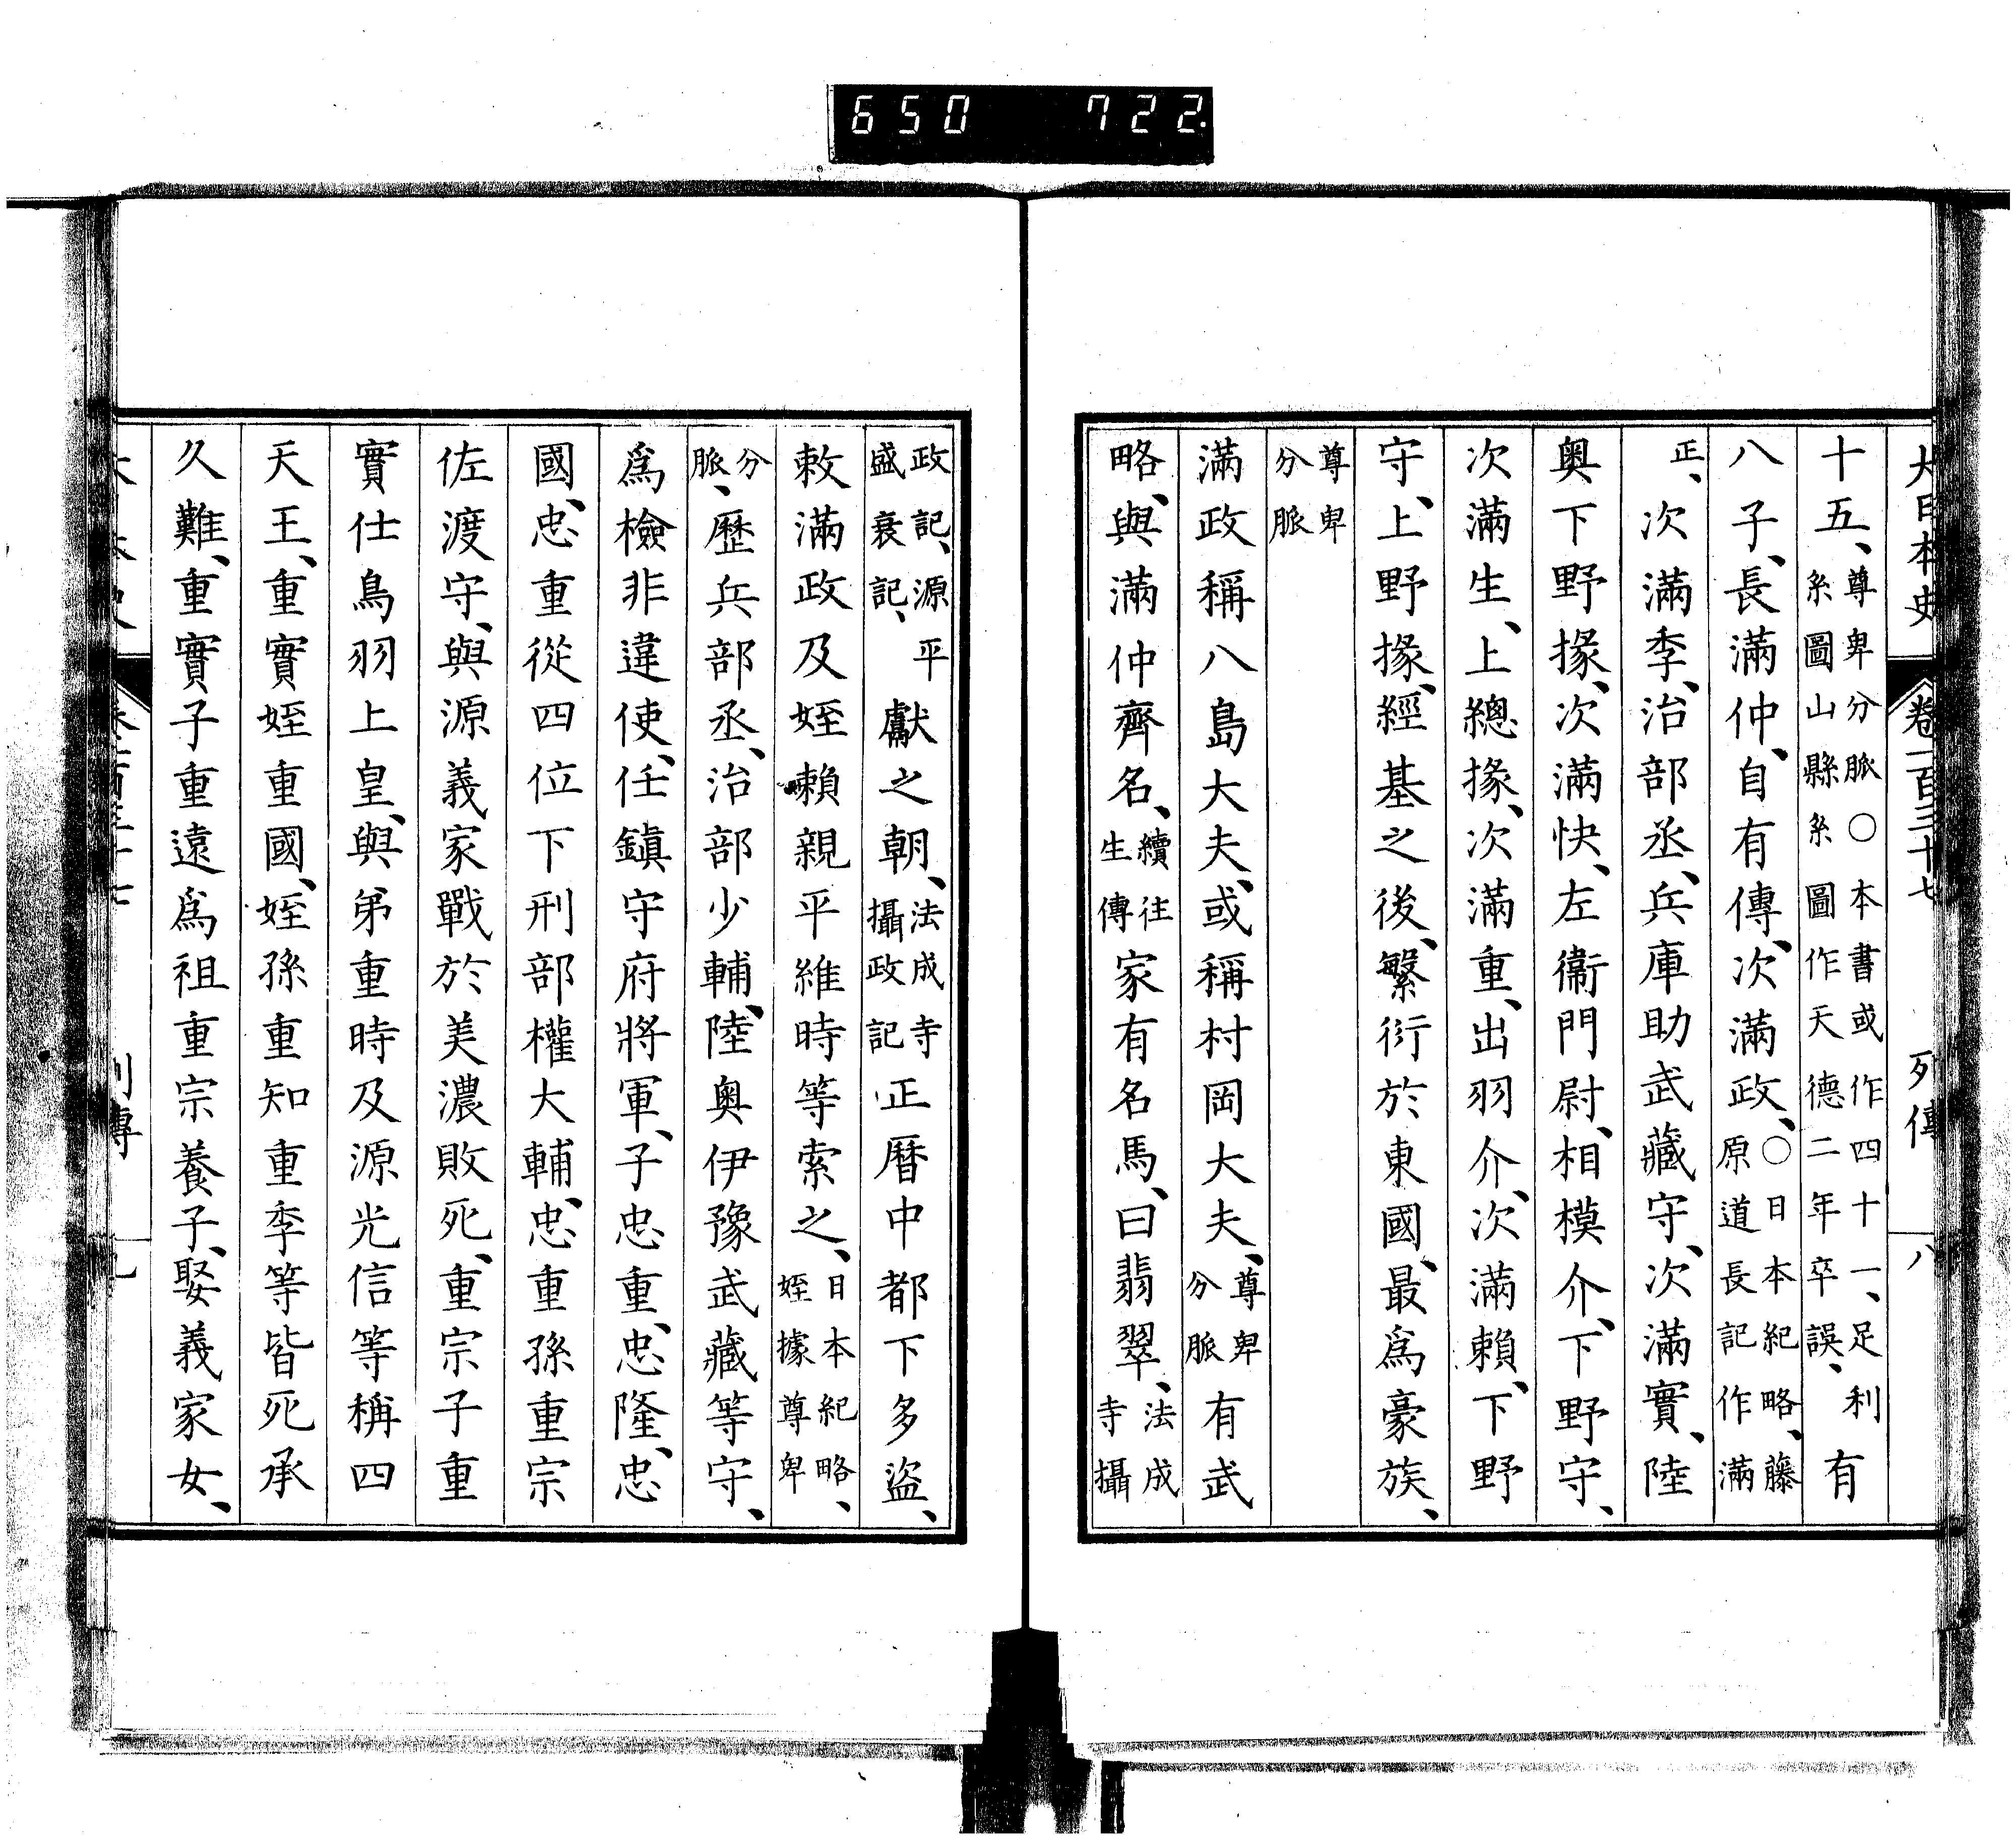 650 722
大日本史 卷一百三十七 列傳 八
十五、尊卑分脈〇本書或作四十一、足利系圖山縣系圖作天德二年卒誤、有
八子、長滿仲、自有傳、次滿政、〇日本紀略、藤原道長記作滿
正、次滿季、治部丞、兵庫助武藏守、次滿實、陸
奥下野掾、次滿快、左衞門尉、相模介、下野守、
次滿生、上總掾、次滿重、出羽介、次滿賴、下野
守、上野掾、經基之後、繁衍於東國、最爲豪族、
尊卑分脈
滿政稱八島大夫、或稱村岡大夫、尊卑分脈有武
略、與滿仲齊名、續往生傳家有名馬、曰翡翠、法成寺攝
政記、源平盛衰記、獻之朝、法成寺攝政記正曆中都下多盜、
敕滿政及姪賴親平維時等索之、日本紀略、姪據尊卑
分脈、歷兵部丞、治部少輔、陸奥伊豫武藏等守、
爲檢非違使、任鎭守府將軍、子忠重、忠隆、忠
國、忠重從四位下刑部權大輔、忠重孫重宗
佐渡守、與源義家戰於美濃敗死、重宗子重
實仕鳥羽上皇、與弟重時及源光信等稱四
天王、重實姪重國、姪孫重知重季等皆死承
久難、重實子重遠爲祖重宗養子、娶義家女、
列傳